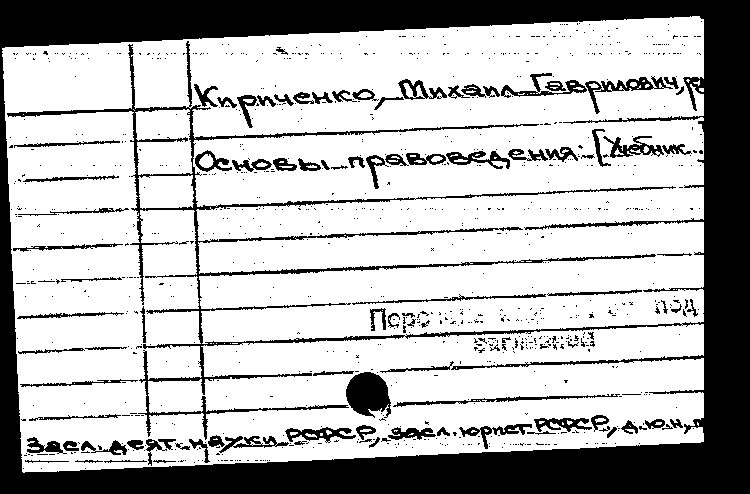 Кириченко, Михаил Гаврилович, ре
Основы правоведения: [Учебник..]
под
заглавией
Засл. деят. науки РСФСР, засл. юрист РСФСР, д.ю.н, п